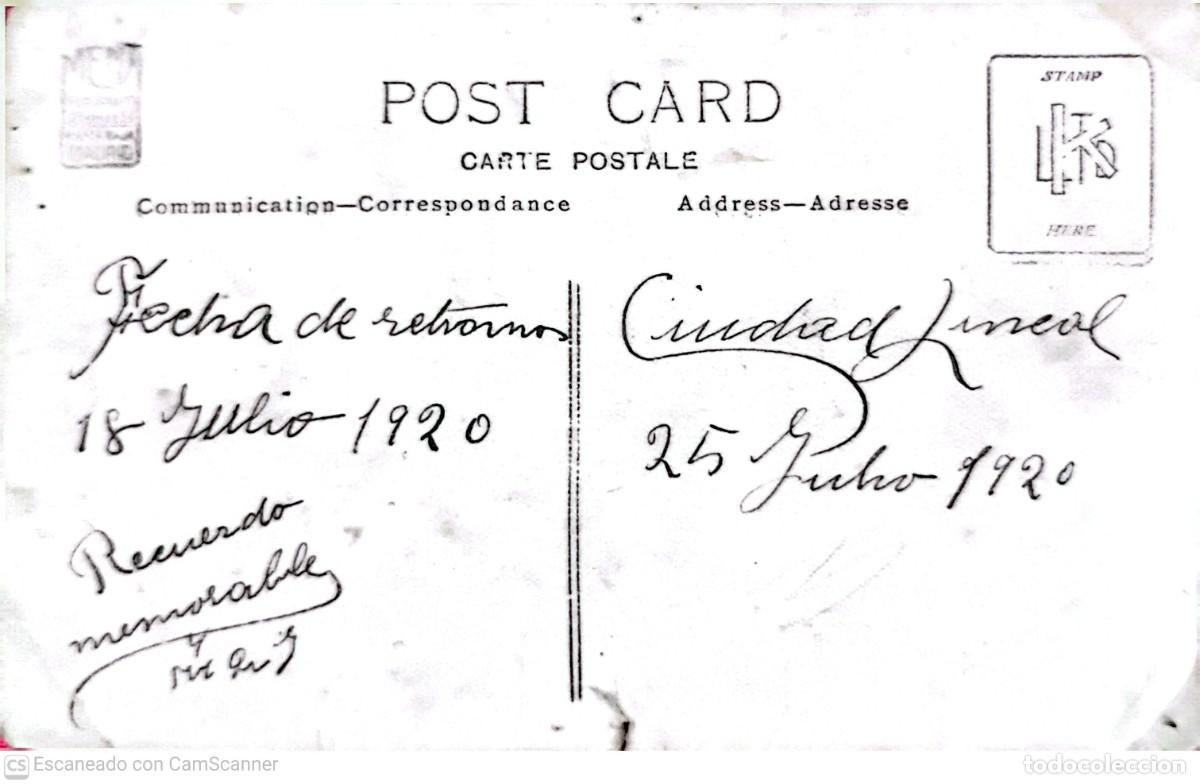 POST CARD
CARTE POSTALE
Communication—Correspondance
Address—Adresse
STAMP
HERE
Fecha de retornos
18 Julio 1920
Recuerdo
memorable
Ciudad Lineal
25 Julio 1920
CS Escaneado con CamScanner
todocoleccion